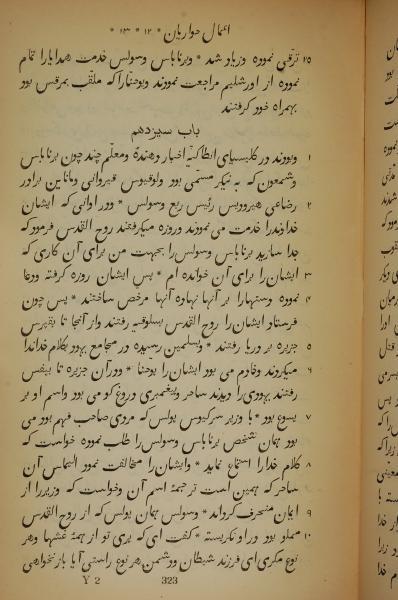 اعمال حواریان * ۱۲ * ۱۳ *
۲۵ ترقی نموده و زیاد شد * و برناباس و سولس خدمت هدایا را تمام
نموده از اورشلیم مراجعت نمودند و یوحنا را که ملقب بمرقس بود
بهمراه خود گرفتند
باب سیزدهم
۱ و بودند در کلیسیای انطاکیه اخبار دهنده و معلم چند چون برناباس
و شمعون که به نیکر مسمی بود و لوقیوس قیروانی و ماناین برادر
۲ رضاعی هیرودیس رئیس ربع و سولس * و در اوانی که ایشان
خداوند را خدمت می نمودند و روزه میگرفتند روح القدس فرمود که
جدا سازید برناباس و سولس را بجهت من برای آن کاری که
۳ ایشان را برای آن خوانده ام * پس ایشان روزه گرفته و دعا
۴ نموده و دستها را بر آنها نهاده آنها را مرخص ساختند * پس چون
فرستاد ایشان را روح القدس بسلوقیه رفتند و از آنجا تا بقپرس
۵ جزیره بر دریا رفتند * و بسلمین رسیده در مجامع یهود بکلام خدا ندا
۶ میکردند و خادم می بود ایشان را یوحنا * و در آن جزیره تا بپفس
رفتند یهودی را دیدند ساحر و پیغمبری دروغ گو می بود و اسم او بر
۷ یسوع بود * با وزیر سرکیوس پولس که مردی صاحب فهم بود می
بود همان شخص برناباس و سولس را طلب نموده خواست که
۸ کلام خدا را استماع نماید * و ایشان را مخالفت نمود الیماس آن
ساحر که همین است ترجمهٔ اسم آن و خواست که وزیر را از
۹ ایمان منحرف گرداند * و سولس همان پولس که از روح القدس
۱۰ مملو بود در او نگریسته * گفت ای که پری تو از همهٔ غشها و هر
نوع مکری ای فرزند شیطان و دشمن هر نوع راستی آیا باز نخواهی
Y 2 323